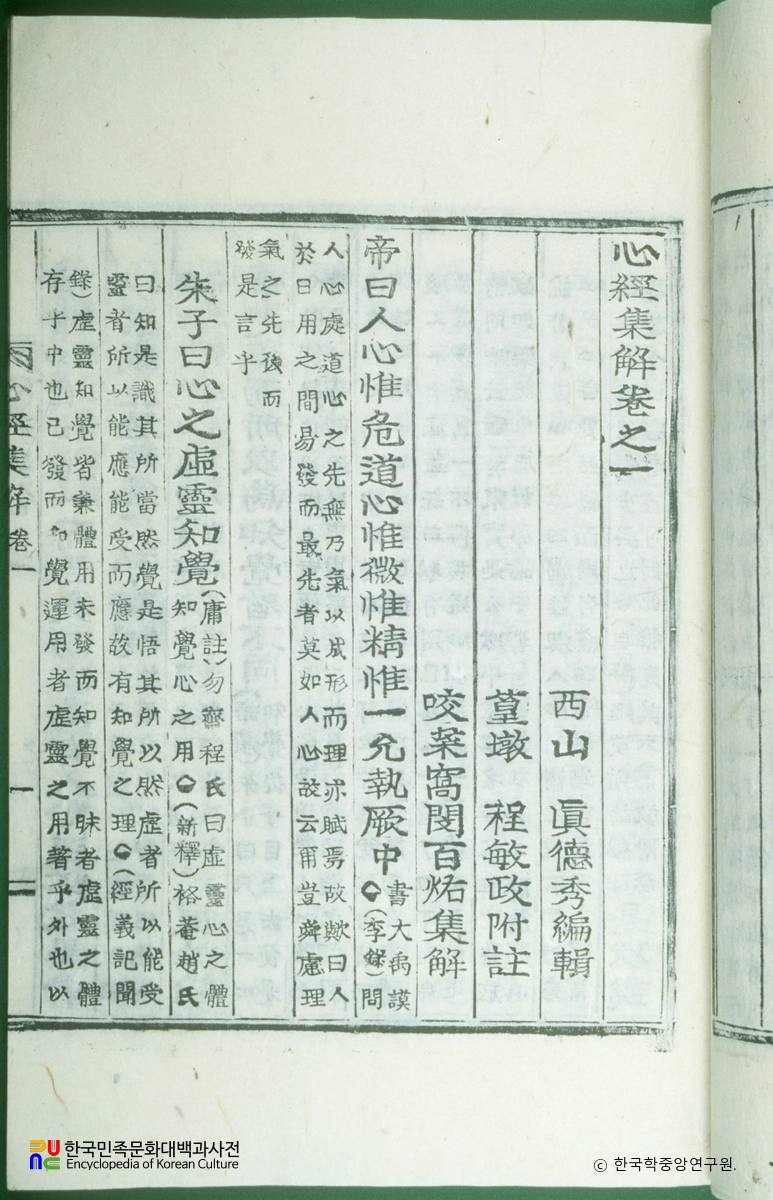 心經集解卷之一
西山 眞德秀編輯
篁墩 程敏政附註
咬菜窩閔百祐集解
帝曰人心惟危道心惟微惟精惟一允執厥中
書大禹謨
(李錄)問
人心處道心之先無乃氣以成形而理亦賦焉故歟曰人
於日用之間易發而最先者莫如人心故云爾豈舜處理
氣之先後而
發是言乎
朱子曰心之虛靈知覺
(庸註)勿齋程氏曰虛靈心之體
知覺心之用(新釋)格菴趙氏
曰知是識其所當然覺是悟其所以然虛者所以能受
靈者所以能應能受而應故有知覺之理(經義記聞
錄)虛靈知覺皆兼體用未發而知覺不昧者虛靈之體
存乎中也已發而知覺運用者虛靈之用著乎外也以
心經集解 卷一
一
한국민족문화대백과사전
Encyclopedia of Korean Culture
ⓒ 한국학중앙연구원.